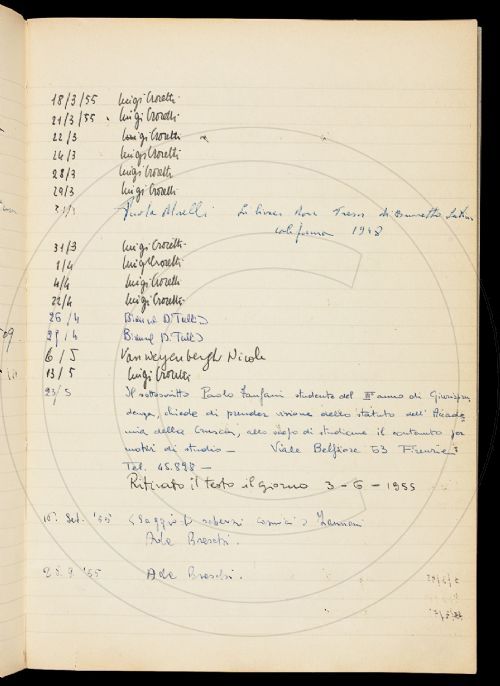 18/3/55 Luigi Crocetti
21/3/55 Luigi Crocetti
22/3 Luigi Crocetti
24/3 Luigi Crocetti
28/3 Luigi Crocetti
29/3 Luigi Crocetti
31/3 Li livres dou Tresor di Brunetto Latini
California 1948
31/3 Luigi Crocetti
1/4 Luigi Crocetti
4/4 Luigi Crocetti
22/4 Luigi Crocetti
26/4
6/5 Vanweyenbergh Nicole
13/5 Luigi Crocetti
23/5 Il sottoscritto Paolo Fanfani studente del II anno di Giurispru
denza, chiede di prender visione dello statuto dell'Accade
mia della Crusca, allo scopo di studiarne il contenuto per
motivi di studio — Viale Belfiore 53 Firenze
Tel. 45.898 —
Ritirato il testo il giorno 3-6-1955
Set. '55
Ada Breschi.
28.9.'55 Ada Breschi.